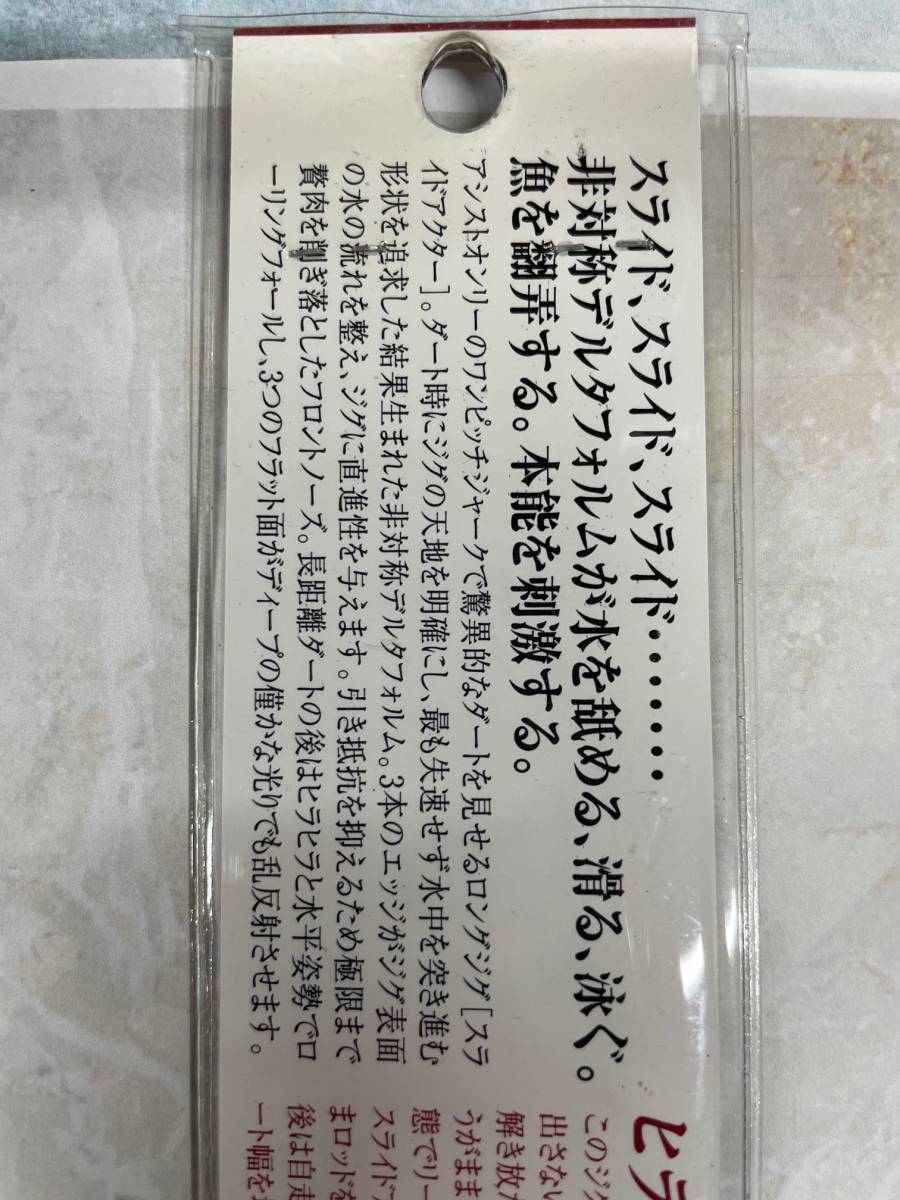 スライド、スライド、スライド・・・・・・
非対称デルタフォルムが水を舐める、滑る、泳ぐ。
魚を翻弄する。本能を刺激する。
アシストオンリーのワンピッチジャークで驚異的なダートを見せるロングジグ［スラ
イドアクター］。ダート時にジグの天地を明確にし、最も失速せず水中を突き進む
形状を追求した結果生まれた非対称デルタフォルム。3本のエッジがジグ表面
の水の流れを整え、ジグに直進性を与えます。引き抵抗を抑えるため極限まで
贅肉を削ぎ落としたフロントノーズ。長距離ダートの後はヒラヒラと水平姿勢でロ
ーリングフォールし、3つのフラット面がディープの僅かな光りでも乱反射させます。
ヒラ
このジグ
出さない
解き放
うがまま
態でリー
スライド
まロッドを
後は自走
ート幅を